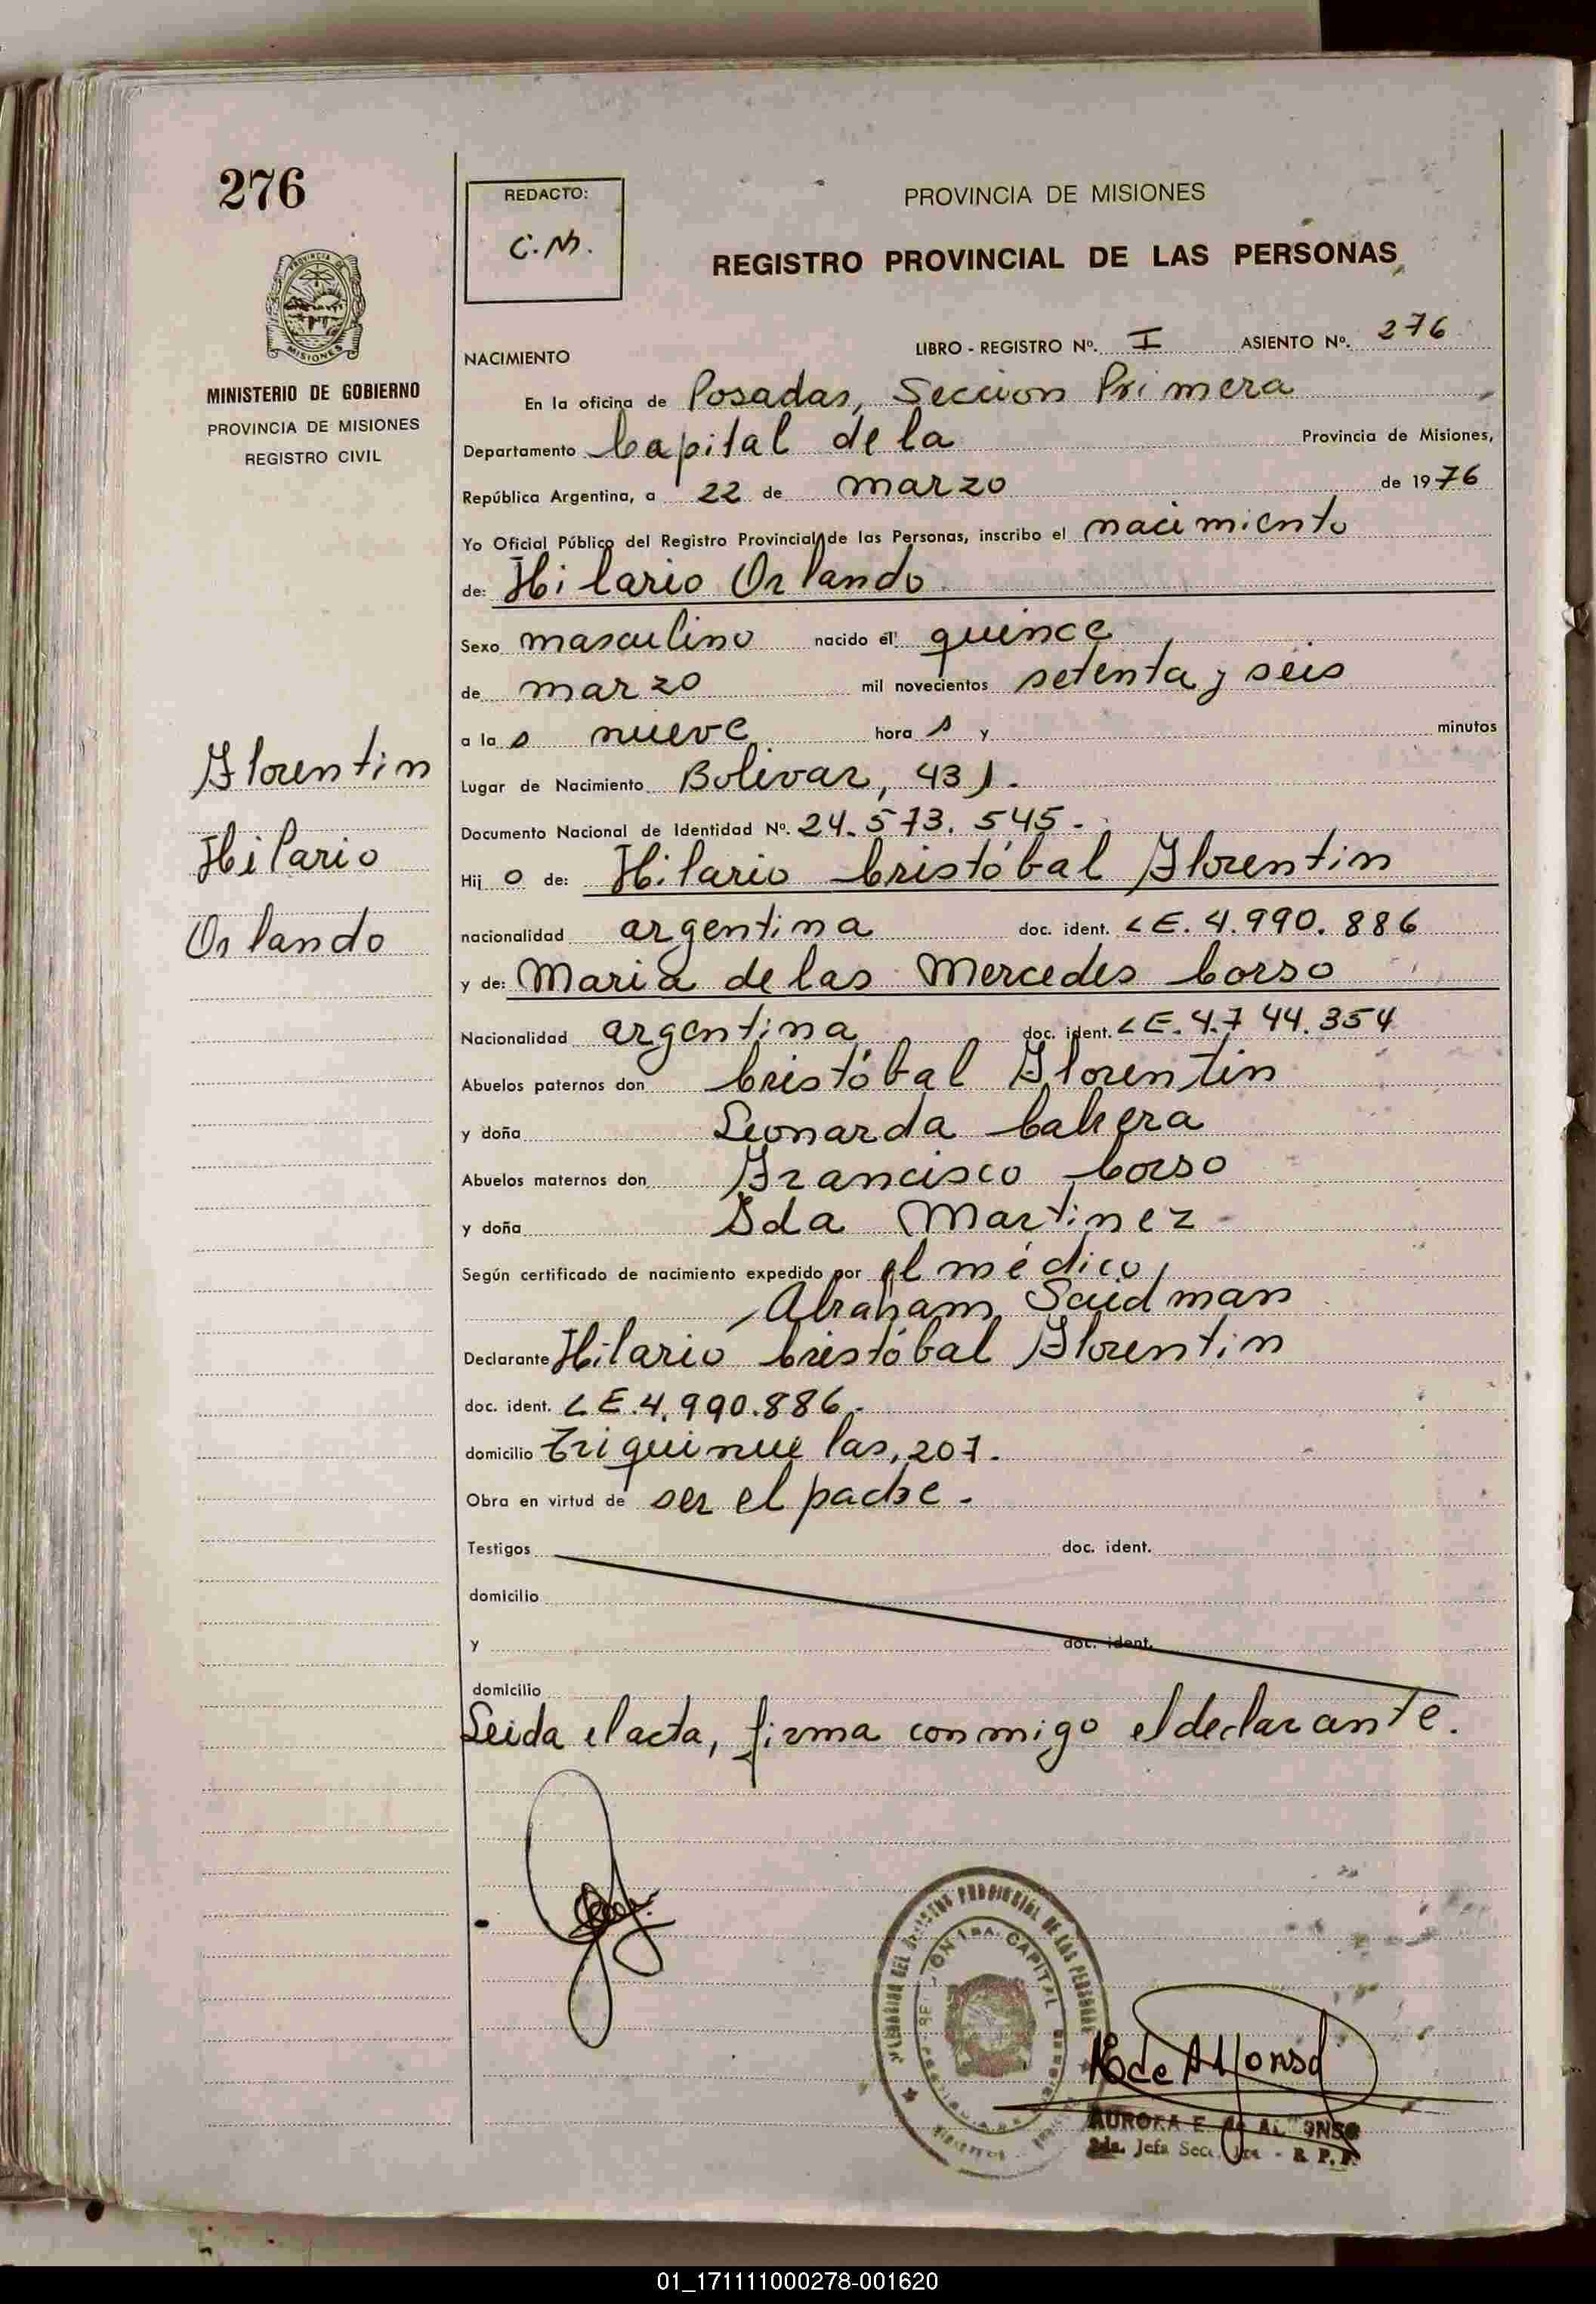 276
REDACTO:
C.M.
PROVINCIA DE MISIONES
REGISTRO PROVINCIAL DE LAS PERSONAS
PROVINCIA DE
MISIONES
MINISTERIO DE GOBIERNO
PROVINCIA DE MISIONES
REGISTRO CIVIL
NACIMIENTO LIBRO - REGISTRO Nº. I ASIENTO Nº. 276
En la oficina de Posadas, Seccion Primera
Departamento Capital de la Provincia de Misiones,
República Argentina, a 22 de marzo de 1976
Yo Oficial Público del Registro Provincial de las Personas, inscribo el nacimiento
de: Hilario Orlando
Sexo masculino nacido el quince
de marzo mil novecientos setenta y seis
a las nueve horas y minutos
Lugar de Nacimiento Bolivar, 431.
Documento Nacional de Identidad Nº. 24.573.545-
Hijo de: Hilario Cristóbal Florentin
nacionalidad argentina doc. ident. LE. 4.990.886
y de: Maria de las Mercedes Corso
Nacionalidad argentina doc. ident. LE. 4.744.354
Abuelos paternos don Cristóbal Florentin
y doña Leonarda Cabrera
Abuelos maternos don Francisco Corso
y doña Ida Martinez -
Según certificado de nacimiento expedido por el médico,
Abraham Saidman
Declarante Hilario Cristóbal Florentin
doc. ident. LE. 4.990.886.-
domicilio Triquinuelas, 207.
Obra en virtud de ser el padre -
Testigos doc. ident.
domicilio
y doc. ident.
domicilio
Leida el acta, firma conmigo el declarante.
Florentin
Hilario
Orlando
CAPITAL
E de Alfonso
AURORA E. de ALFONSO
2da. Jefa Secc. 1ra - R. P. P.
01_171111000278-001620